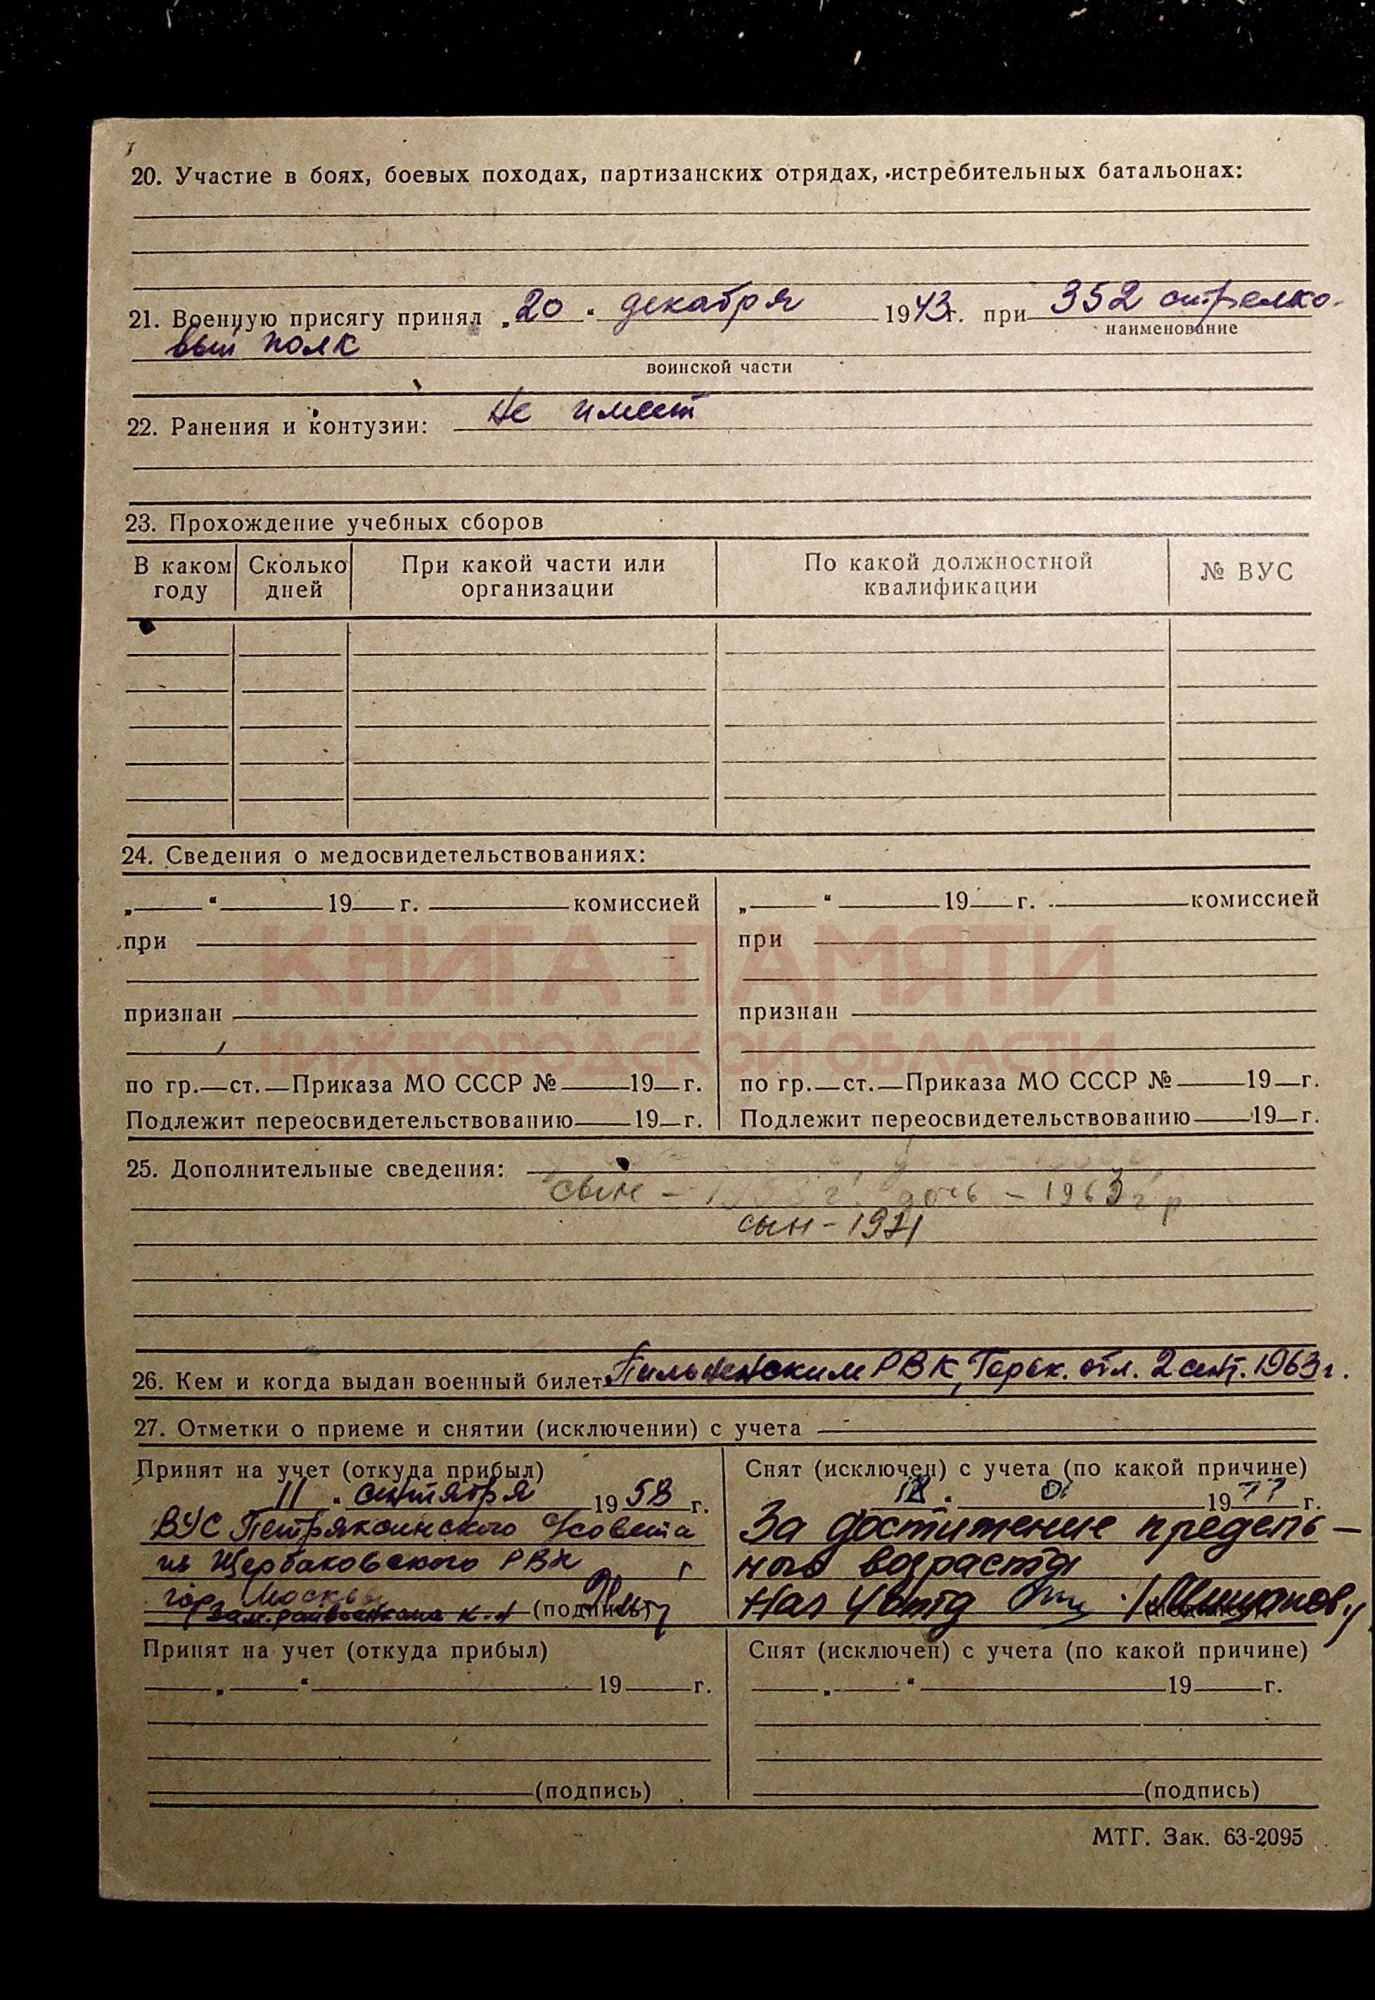 20. Участие в боях, боевых походах, партизанских отрядах, истребительных батальонах:
21. Военную присягу принял „20“ декабря 1943г. при 352 стрелко-
наименование
вый полк
воинской части
22. Ранения и контузии: Не имеет
23. Прохождение учебных сборов
В каком году Сколько дней При какой части или организации По какой должностной квалификации № ВУС
24. Сведения о медосвидетельствованиях:
„ “ 19 г. комиссией „ “ 19 г. комиссией
при при
КНИГА ПАМЯТИ
признан признан
НИЖЕГОРОДСКОЙ ОБЛАСТИ
по гр. ст. Приказа МО СССР № 19 г. по гр. ст. Приказа МО СССР № 19 г.
Подлежит переосвидетельствованию 19 г. Подлежит переосвидетельствованию 19 г.
25. Дополнительные сведения:
сын - г. дочь - 1963 г р
сын - 1971
26. Кем и когда выдан военный билет Пильненским РВК, Горьк. обл. 2 сент. 1963 г.
27. Отметки о приеме и снятии (исключении) с учета
Принят на учет (откуда прибыл) Снят (исключен) с учета (по какой причине)
11 сентября 1958 г. 1977 г.
ВУС Петряксинского с/совета За достижение предель-
из Щербаковского РВК ного возраста
гор Москвы Нач
Зам. райвоенкома (подпись)
Принят на учет (откуда прибыл) Снят (исключен) с учета (по какой причине)
„ “ 19 г. „ “ 19 г.
(подпись) (подпись)
МТГ. Зак. 63-2095